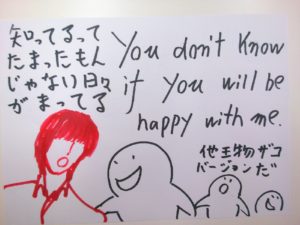 知ってるって
たまったもん
じゃない日々
がまってる
You don't know
if you will be
happy with me.
他王物ザコ
バージョンだ